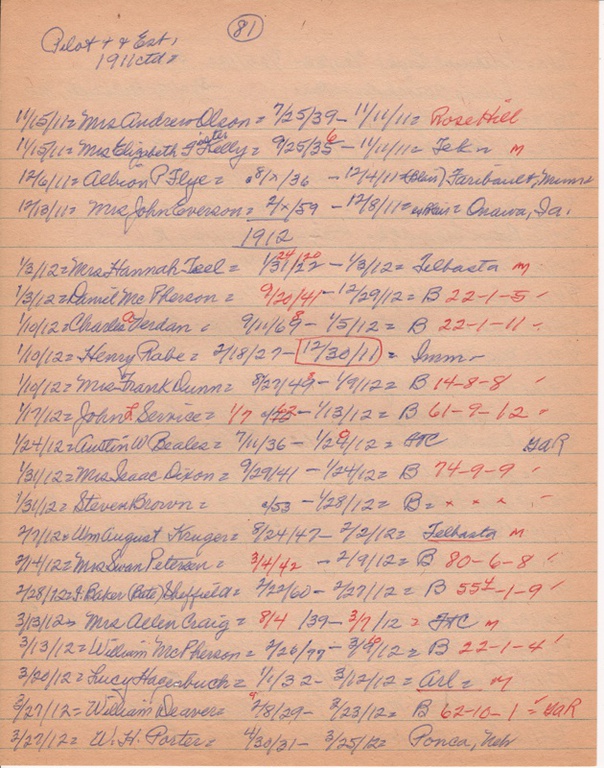 81
Pilot + + Est.
1911 ctd =
11/15/11 = Mrs Andrew Olson = 7/25/39 - 11/11/11 = Rose Hill
11/15/11 = Mrs Elizabeth Kelly = 9/25/35 6 - 11/11/11 = Tek n m
12/6/11 = Albion P Flye = 8/x/36 - 12/4/11 (Blair) Faribault, Minn
12/13/11 = Mrs John Everson = 2/x/59 - 12/8/11 = Onawa, Ia.
1912
1/3/12 = Mrs Hannah Tsel = 1/31/22 24/20 - 1/3/12 = Telbasta m
1/3/12 = Daniel McPherson = 9/20/41 - 12/29/12 = B 22-1-5
1/10/12 = Charles A Verdan = 9/11/69 8 - 1/5/12 = B 22-1-11
1/10/12 = Henry Rabe = 2/18/27 - 12/30/11 = Imm
1/10/12 = Mrs Frank Dunn = 8/27/49 8 - 1/9/12 = B 14-8-8
1/17/12 = John L Service = 1/7 - 1/13/12 = B 61-9-12
1/24/12 = Austin W Beales = 7/11/36 - 1/20/12 = HC GaR
1/31/12 = Mrs Isaac Dixon = 9/29/41 - 1/24/12 = B 74-9-9
1/31/12 = Steven Brown = /53 - 1/28/12 = B = x x x
2/7/12 = Wm August Kruger = 8/24/47 - 2/2/12 = Telbasta m
2/14/12 = Mrs Swan Petersen = 3/4/42 - 2/9/12 = B 80-6-8
2/28/12 = J. Baker (Bate) Sheffield = 2/22/60 - 2/27/12 = B 55½-1-9
3/13/12 = Mrs Allen Craig = 8/4/39 - 3/7/12 = HC m
3/13/12 = William McPherson = 2/26/77 - 3/9/12 = B 22-1-4
3/20/12 = Lucy Hagenbuch = 1/1/32 - 3/12/12 = Arl = m
3/27/12 = William Deaver = 2/8/29 - 3/23/12 = B 62-10-1 = GaR
3/27/12 = W. H. Porter = 4/30/31 - 3/25/12 = Ponca, Neb